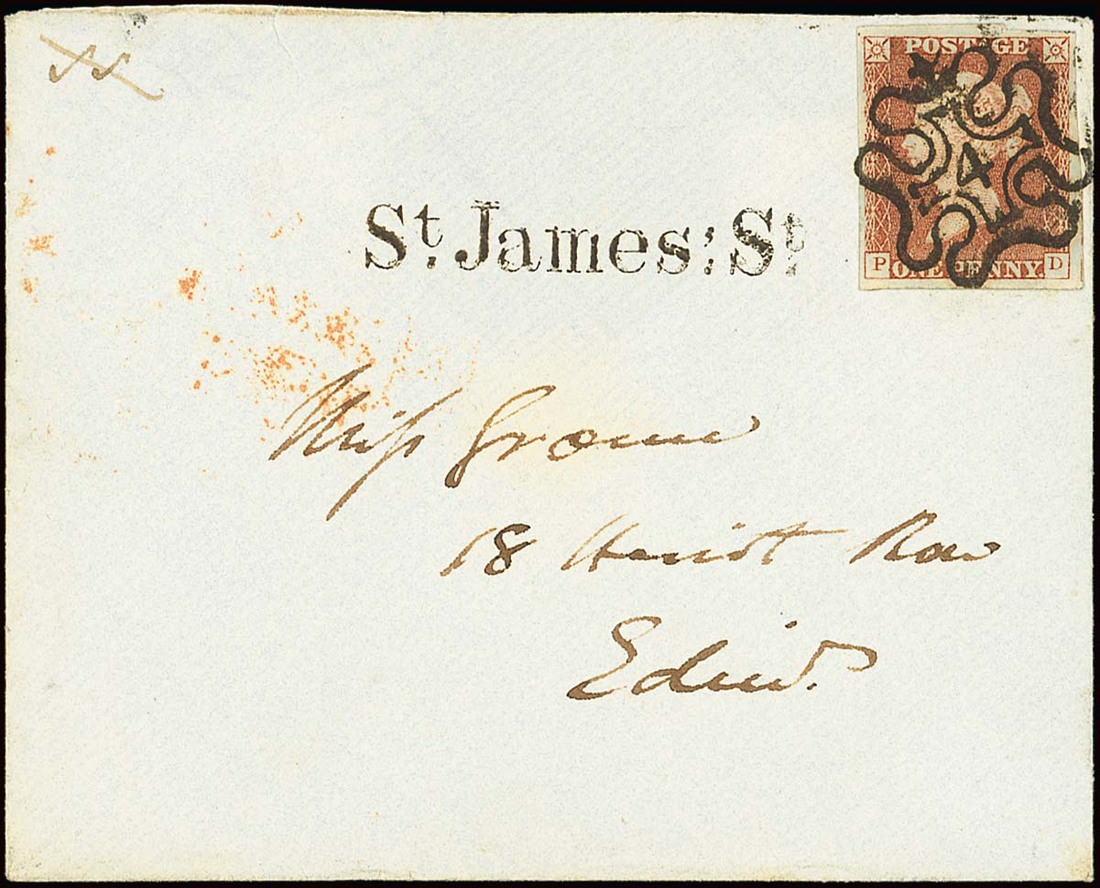 POSTAGE
4
P ONE PENNY. D
St. James: St.
Miss Groome
18 Heriot Row
Edinr.